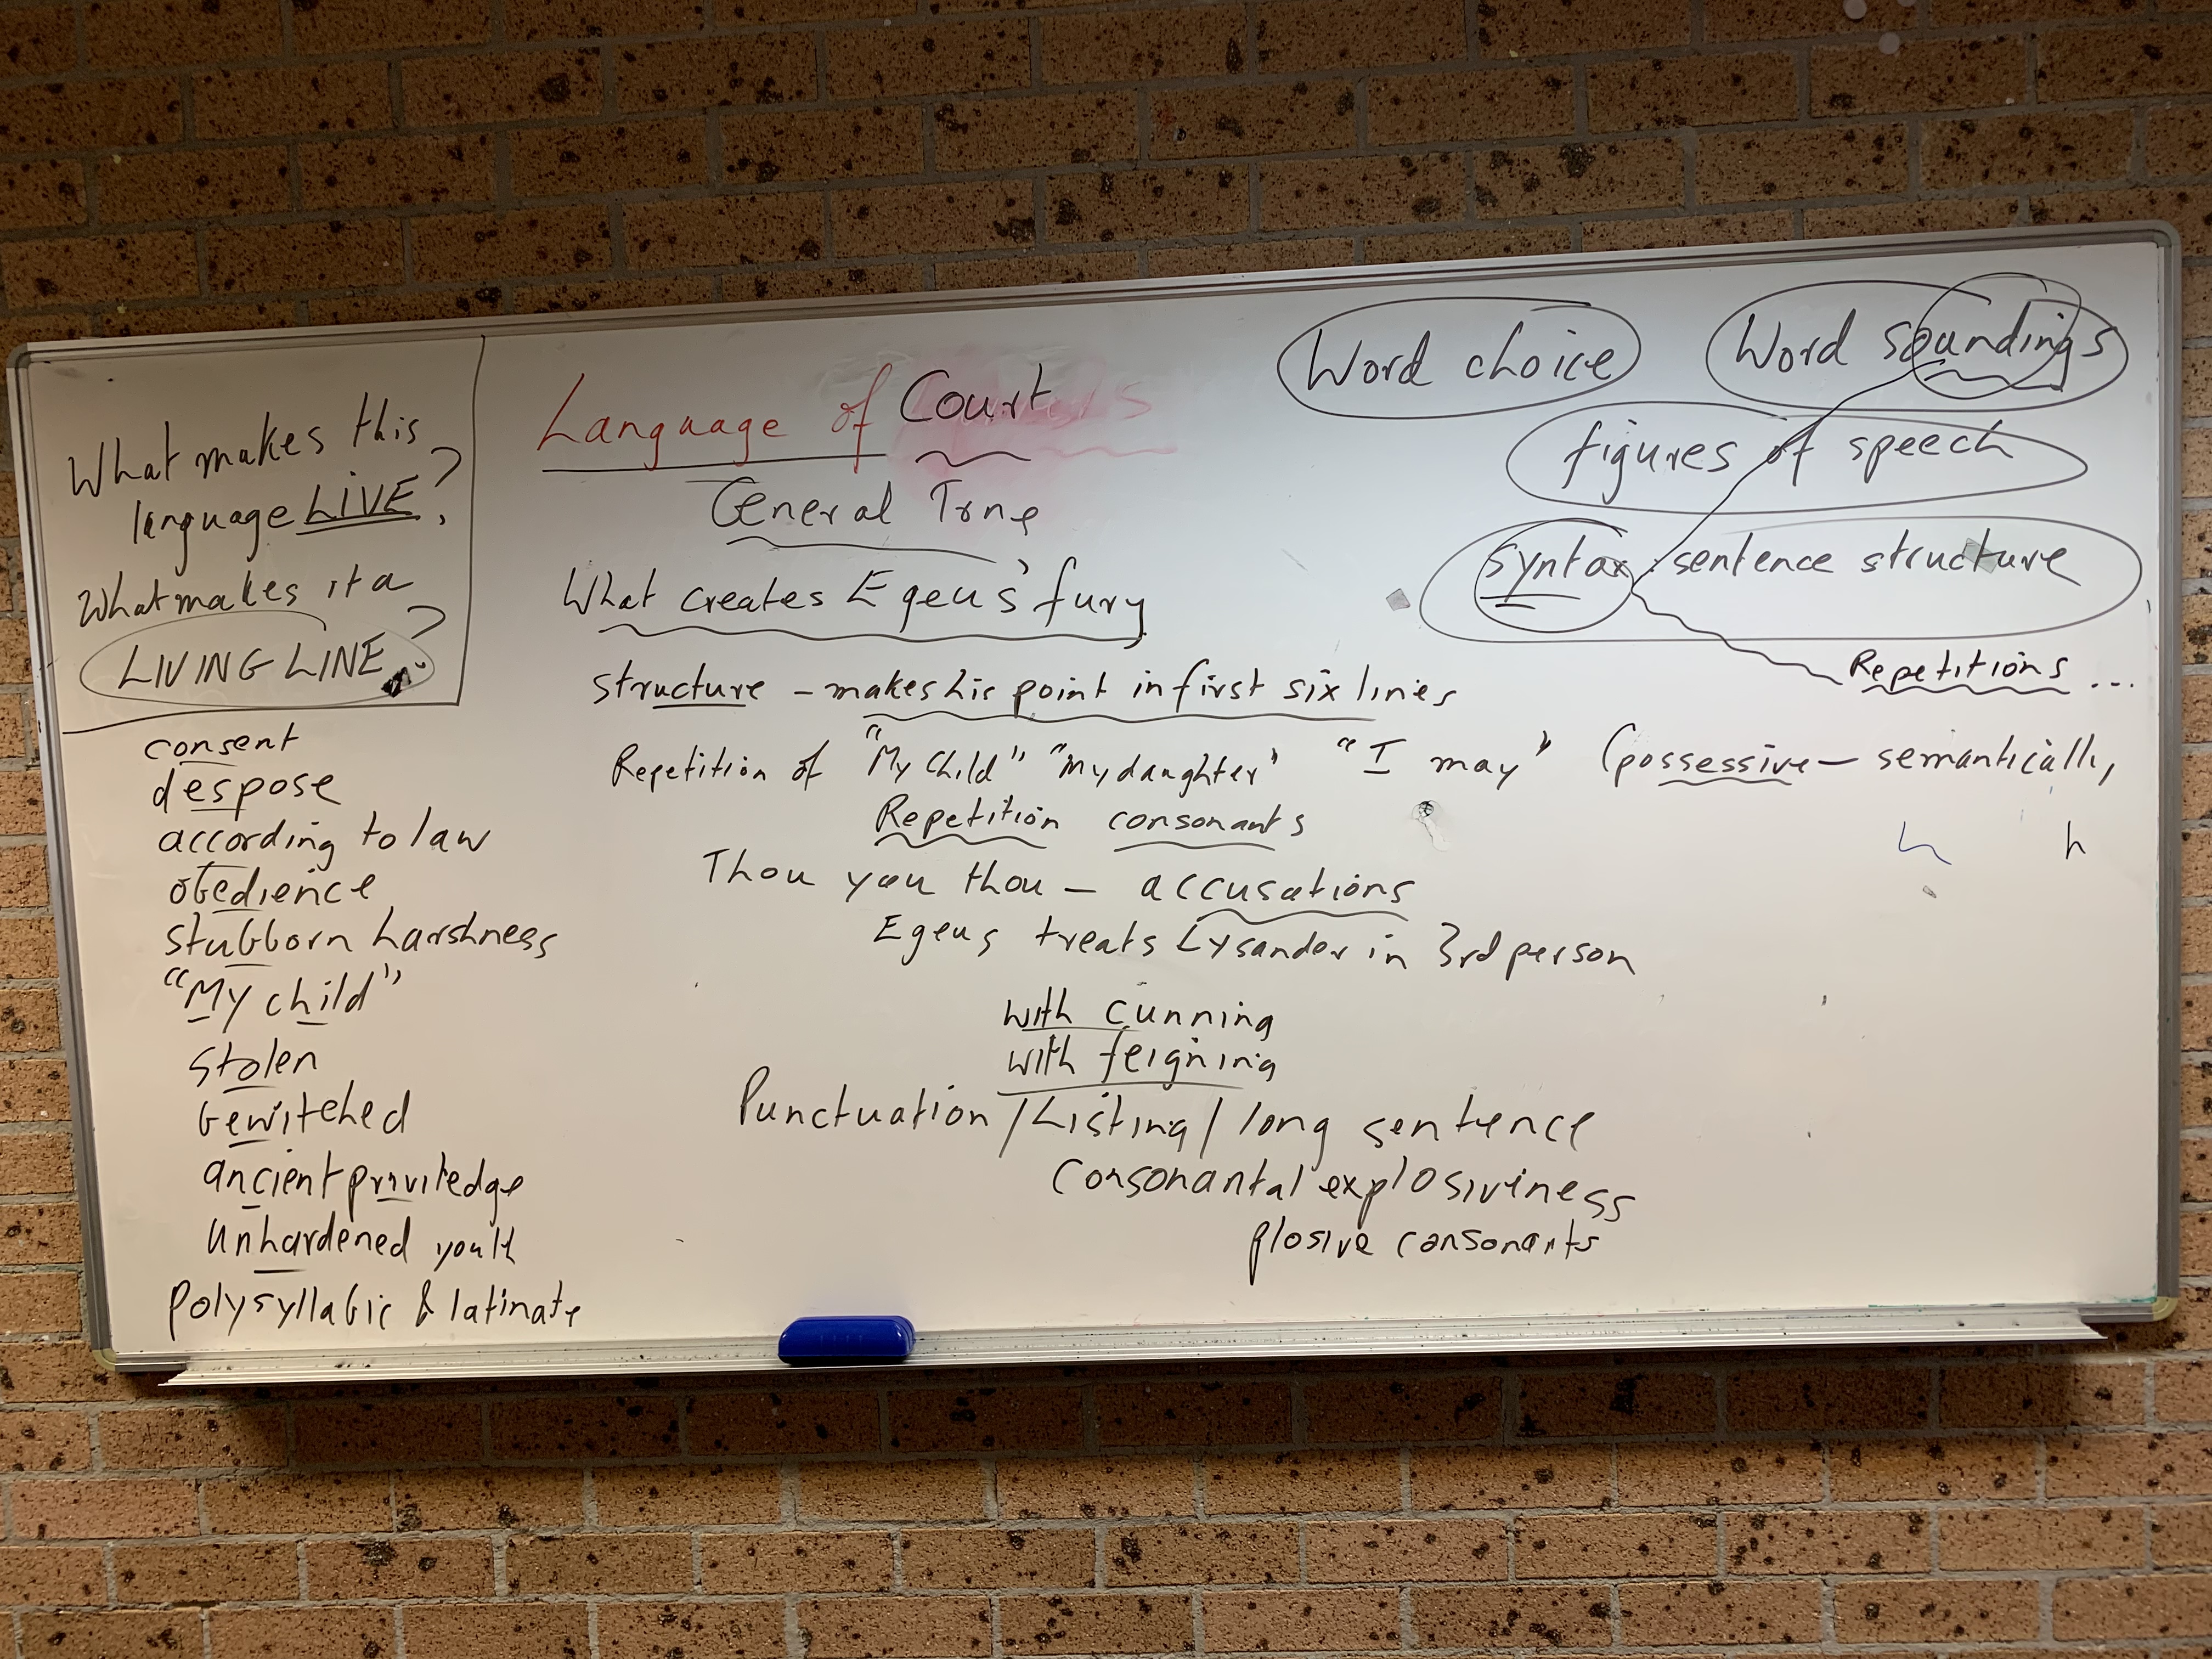 What makes this
language LIVE?
What makes it a
LIVING LINE?
consent
despose
according to law
obedience
stubborn harshness
"My child"
stolen
bewitched
ancient priviledge
unhardened youth
polysyllabic & latinate
Language of Court
General Tone
What creates Egeus' fury
structure – makes his point in first six lines
Repetition of "My child" "my daughter" "I may" (possessive – semantically,
Repetition consonants
Thou you thou – accusations
Egeus treats Lysander in 3rd person
with cunning
with feigning
Punctuation / Listing / long sentence
Consonantal explosiviness
plosive consonants
Word choice
Word soundings
figures of speech
syntax: sentence structure
Repetitions ...
h